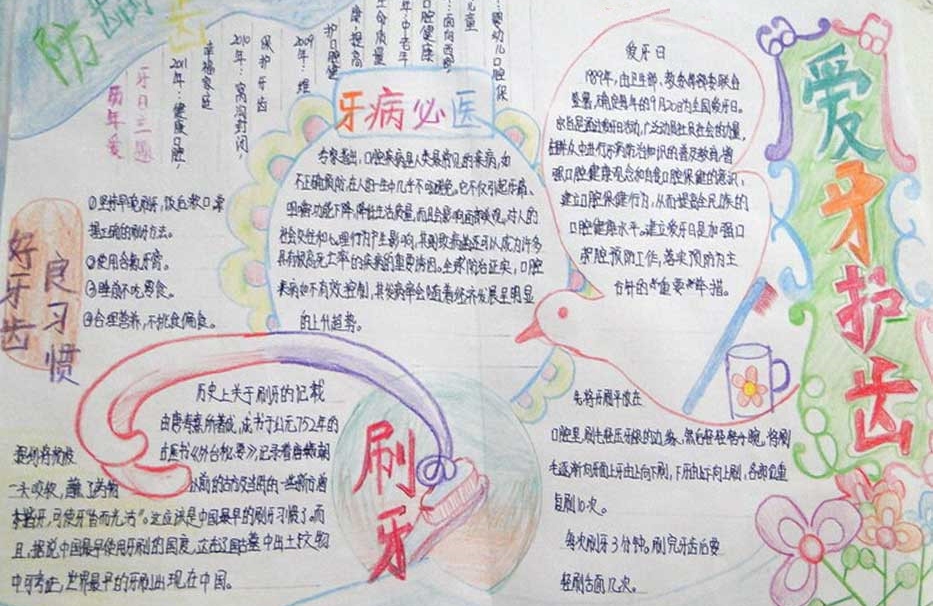 防
齿
爱牙护齿
婴幼儿口腔保
儿童
面向西部
口腔健康
年中老年
生命质量
康 提高
护口腔健
2009年：维
保护牙齿
2010年：窝沟封闭，
幸福家庭
2011年：健康口腔，
牙日主题
历年爱
牙病必医
专家指出，口腔疾病是人类最常见的疾病，如
不正确预防，在人的一生中几乎不可避免。它不仅引起疼痛、
咀嚼功能下降，降低生活质量，而且会影响面容美观。对人的
社会交往和心理行为产生影响，其则致病菌还可以成为许多
具有极高死亡率的疾病的重要诱因。全球防治证实，口腔
疾病如不有效控制，其发病率会随着经济发展呈明显
的上升趋势。
爱牙日
1989年，由卫生部、教委等部委联合
签署，确定每年的9月20日为全国爱牙日。
宗旨是通过爱牙日活动，广泛动员社会的力量，
在群众中进行牙病防治知识的普及教育，增
强口腔健康观念和自我口腔保健的意识，
建立口腔保健行为，从而提高全民族的
口腔健康水平。建立爱牙日是加强口
腔预防工作，落实预防为主
方针的重要举措。
好牙齿
良习惯
①坚持早晚刷牙，饭后漱口掌
握正确的刷牙方法。
②使用含氟牙膏。
③睡前不吃零食。
④合理营养，不挑食偏食。
刷牙
历史上关于刷牙的记载
由唐 所著成，成书于公元752年的
中医书《外台秘要》，记录着
一头咬软，蘸了药物
揩牙，可使牙“香而光洁”。这应该是中国最早的刷牙习惯了。而
且，据说中国最早使用牙刷的国度，这在了国古墓中出土文物
中可考证，世界最早的牙刷出现在中国。
先将牙刷平放在
口腔里，刷毛轻压牙根的边缘，然后轻轻转小腕，将刷
毛逐渐向牙面上牙由上向下刷，下牙由下向上刷，各部位重
复刷10次。
每次刷牙3分钟，刷完牙齿后要
轻刷舌面几次。